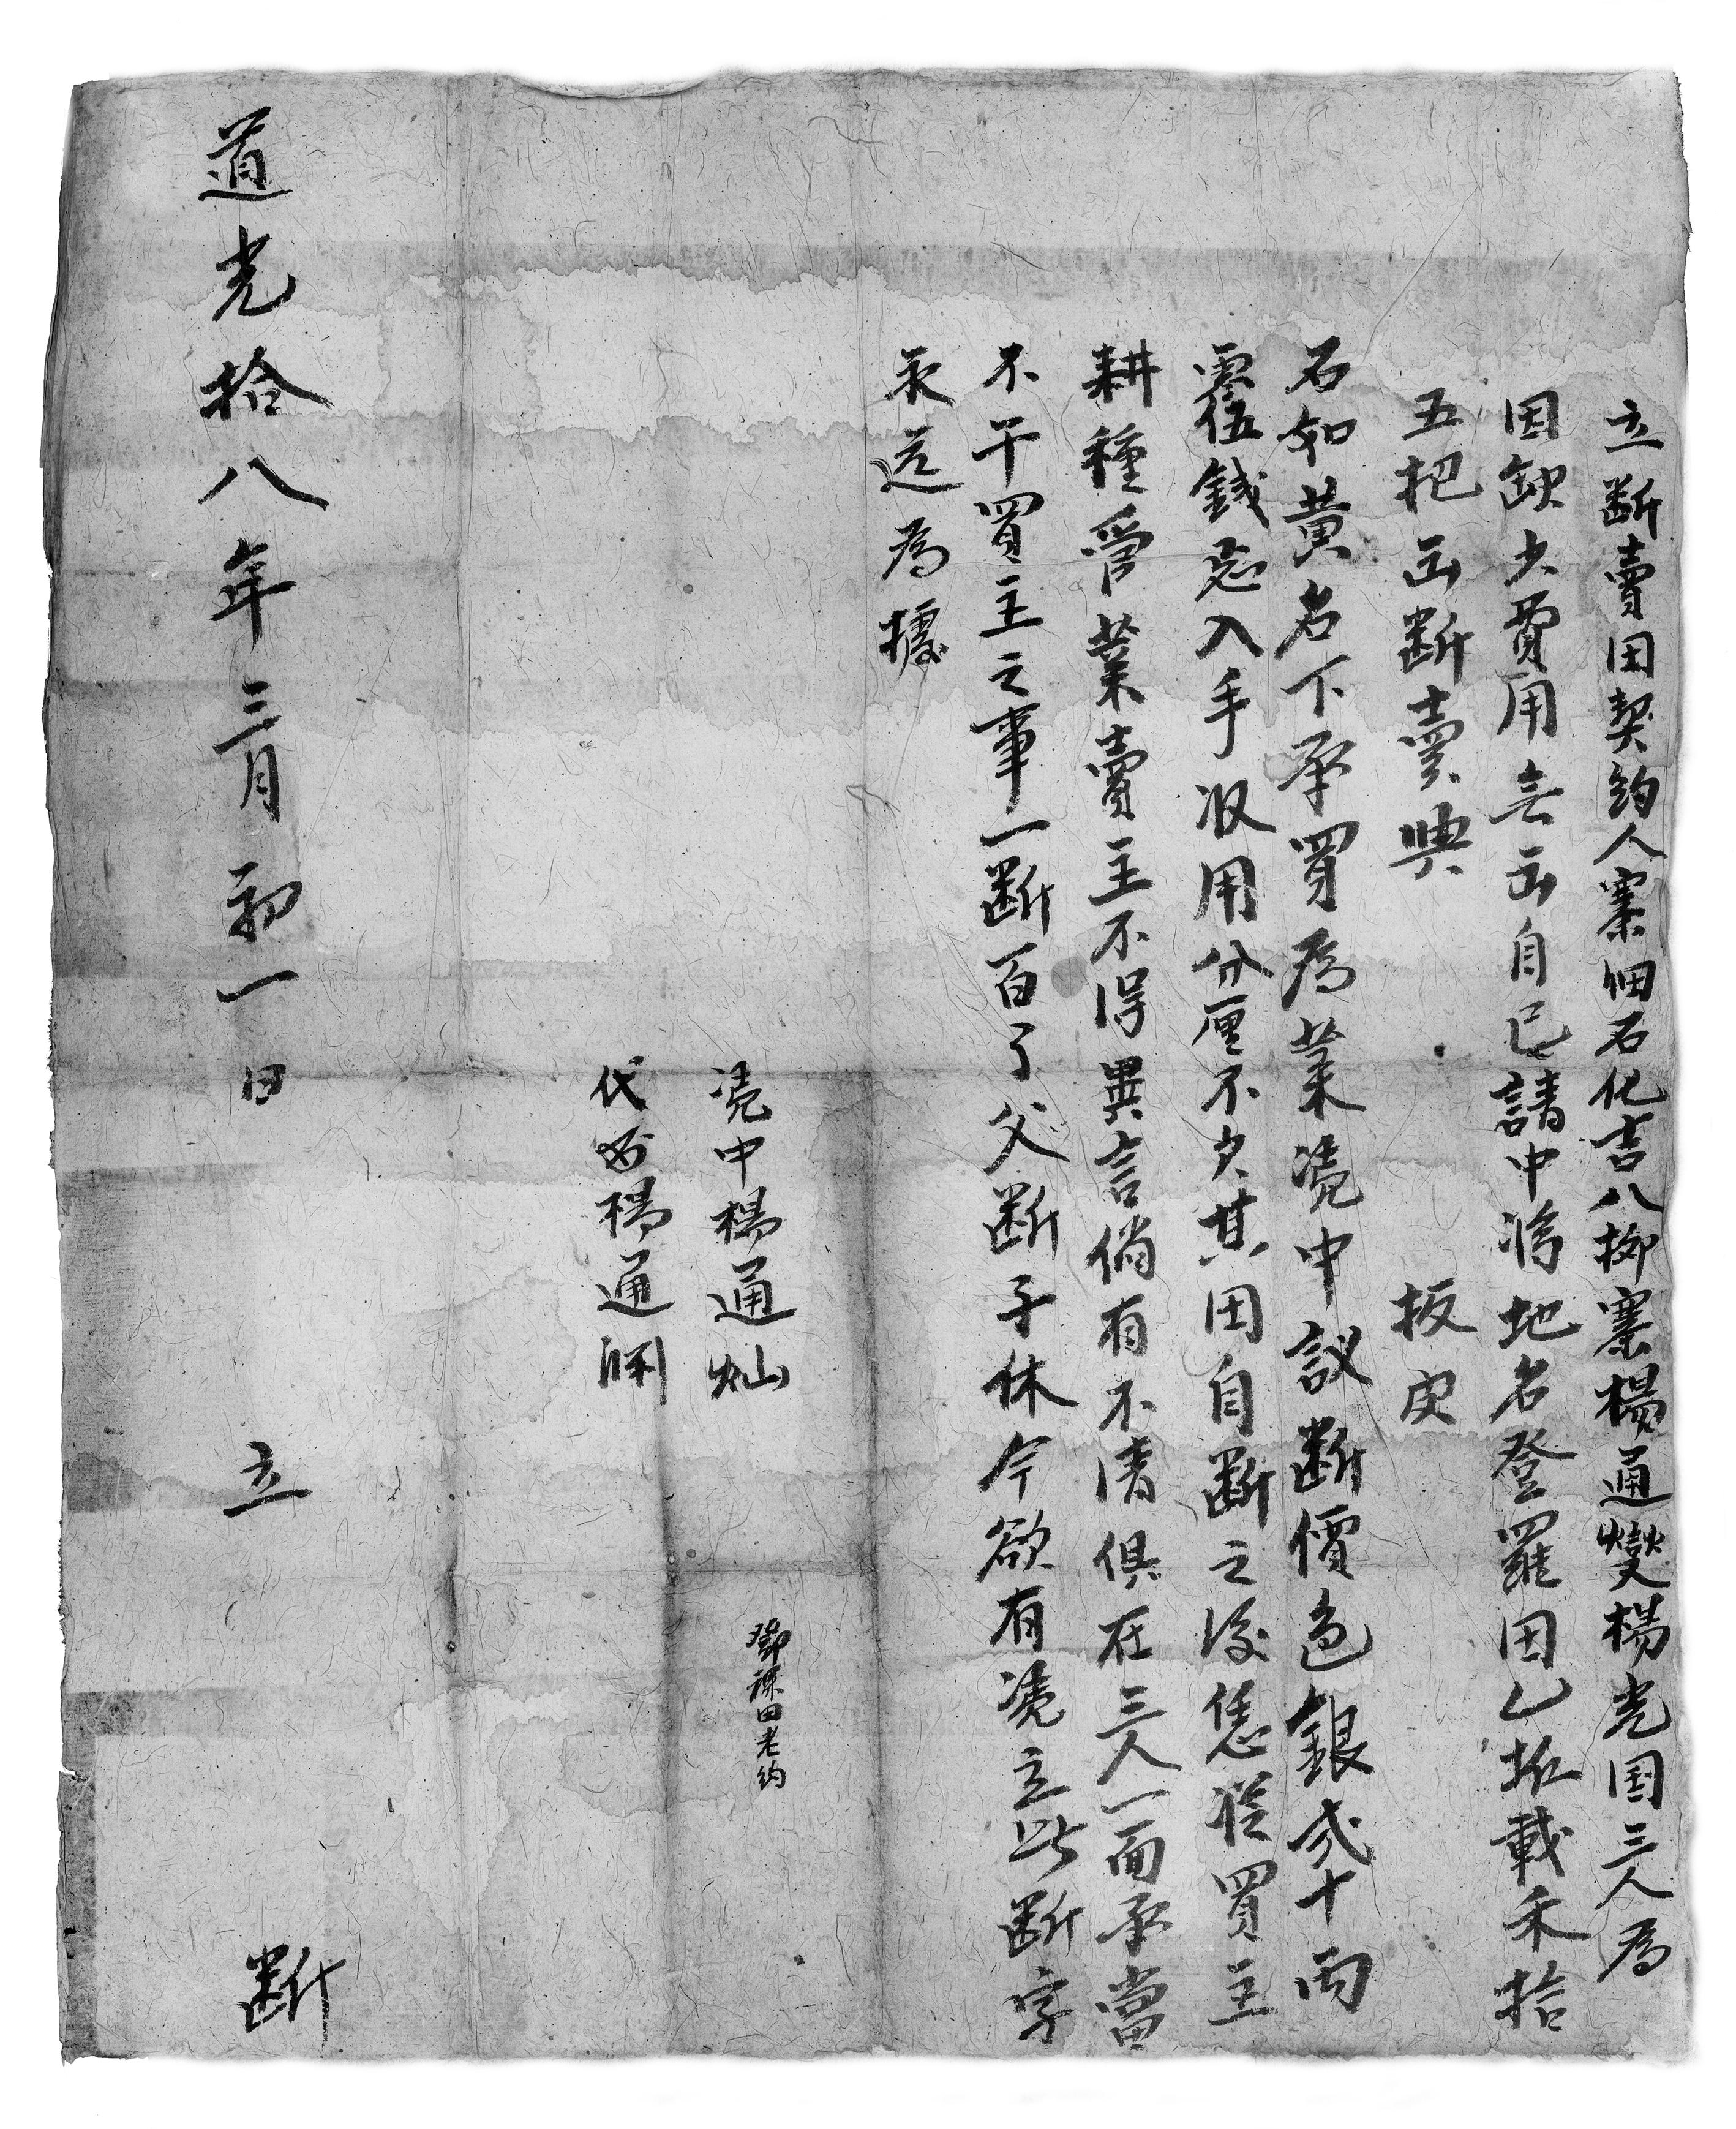 立斷賣田契約人寨佃石化吉八柳寨楊通燮楊光国三人為
因缺少費用無出自己請中將地名登羅田乙坵載禾拾
五把出斷賣與　板寅
石如黃名下承買為業凴中議斷價色銀貳十両
零伍錢忩入手収用分厘不欠其田自斷之後恁從買主
耕種管業賣主不得異言倘有不清俱在三人一面承當
不干買主之事一斷百了父斷子休今欲有凴立此斷字
永遠為據
凴中楊通灿
鄧禄田老約
代筆楊通渊
道光拾八年三月初一日　立　斷